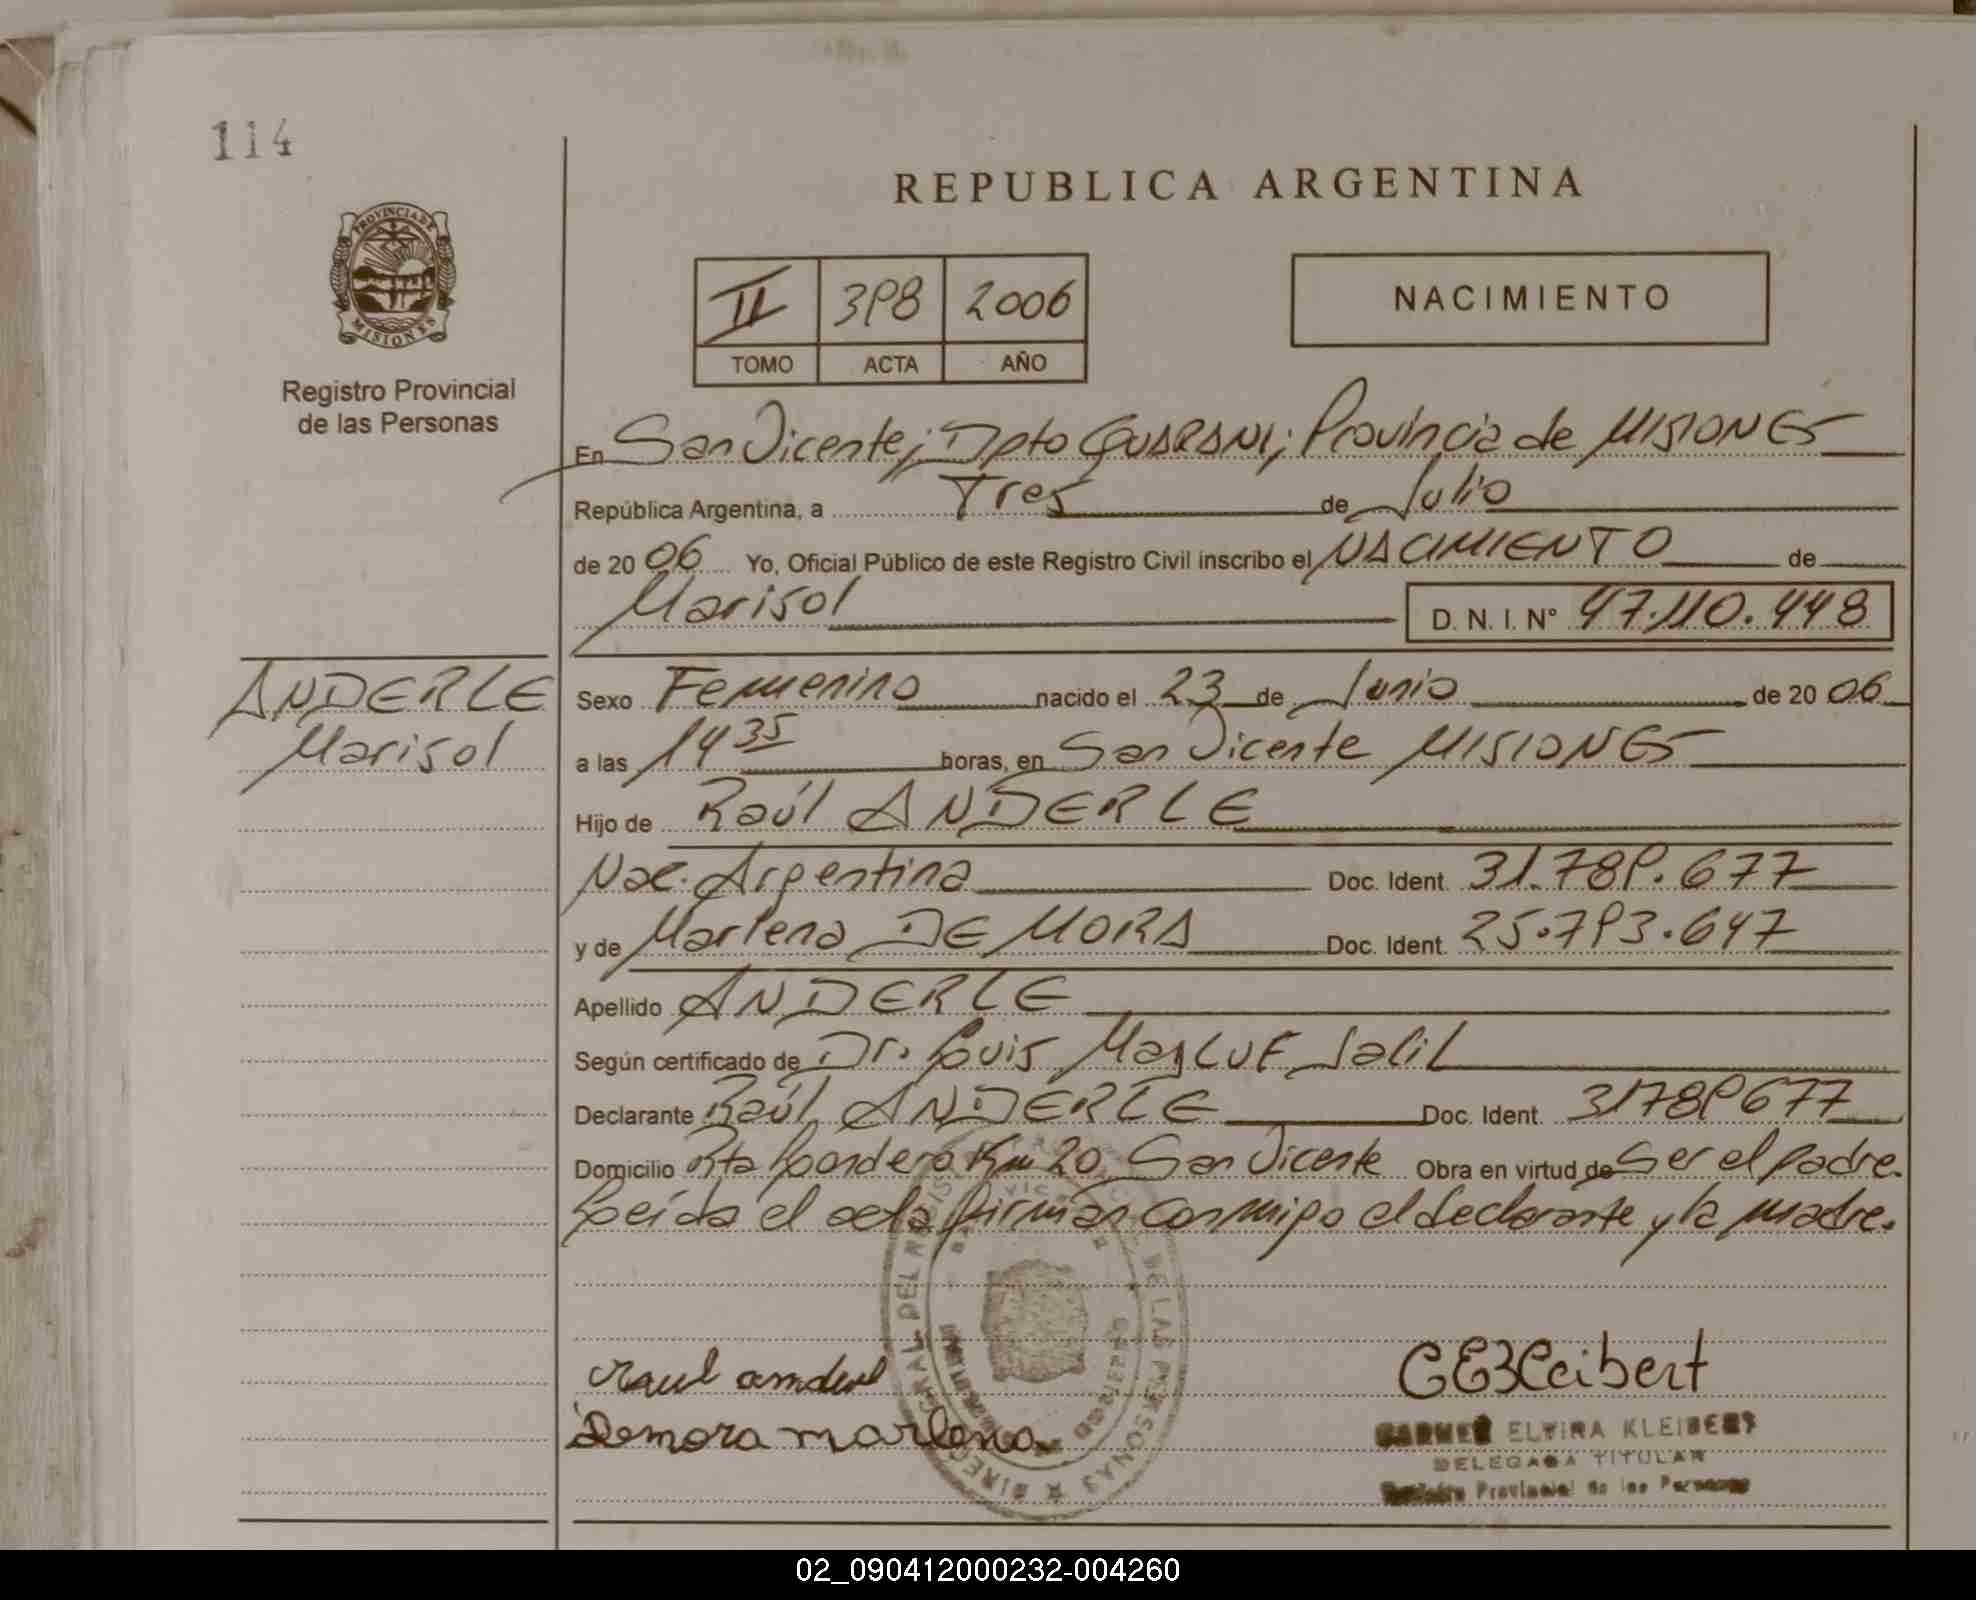 114
REPUBLICA ARGENTINA
PROVINCIA DE
MISIONES
Registro Provincial
de las Personas
II 398 2006
TOMO ACTA AÑO
NACIMIENTO
En San Vicente; Dpto GUARANI; Provincia de MISIONES
República Argentina, a Tres de Julio
de 20 06 Yo, Oficial Público de este Registro Civil inscribo el NACIMIENTO de
Marisol D. N. I. Nº 47.110.448
ANDERLE
Marisol
Sexo Femenino nacido el 23 de Junio de 20 06
a las 14 35 horas, en San Vicente MISIONES
Hijo de Raúl ANDERLE
Nac. Argentina Doc. Ident. 31.789.677
y de Marlena DE MORA Doc. Ident. 25.793.647
Apellido ANDERLE
Según certificado de Dr. Luis Jalil
Declarante Raúl ANDERLE Doc. Ident. 31789677
Domicilio Rta Km 20 San Vicente Obra en virtud de Ser el padre.
Leída el acta firman conmigo el declarante y la madre.
Raul
Demora marlena
CEKleibert
CARMEN ELVIRA KLEIBERT
DELEGADA TITULAR
Registro Provincial de las Personas
02_090412000232-004260